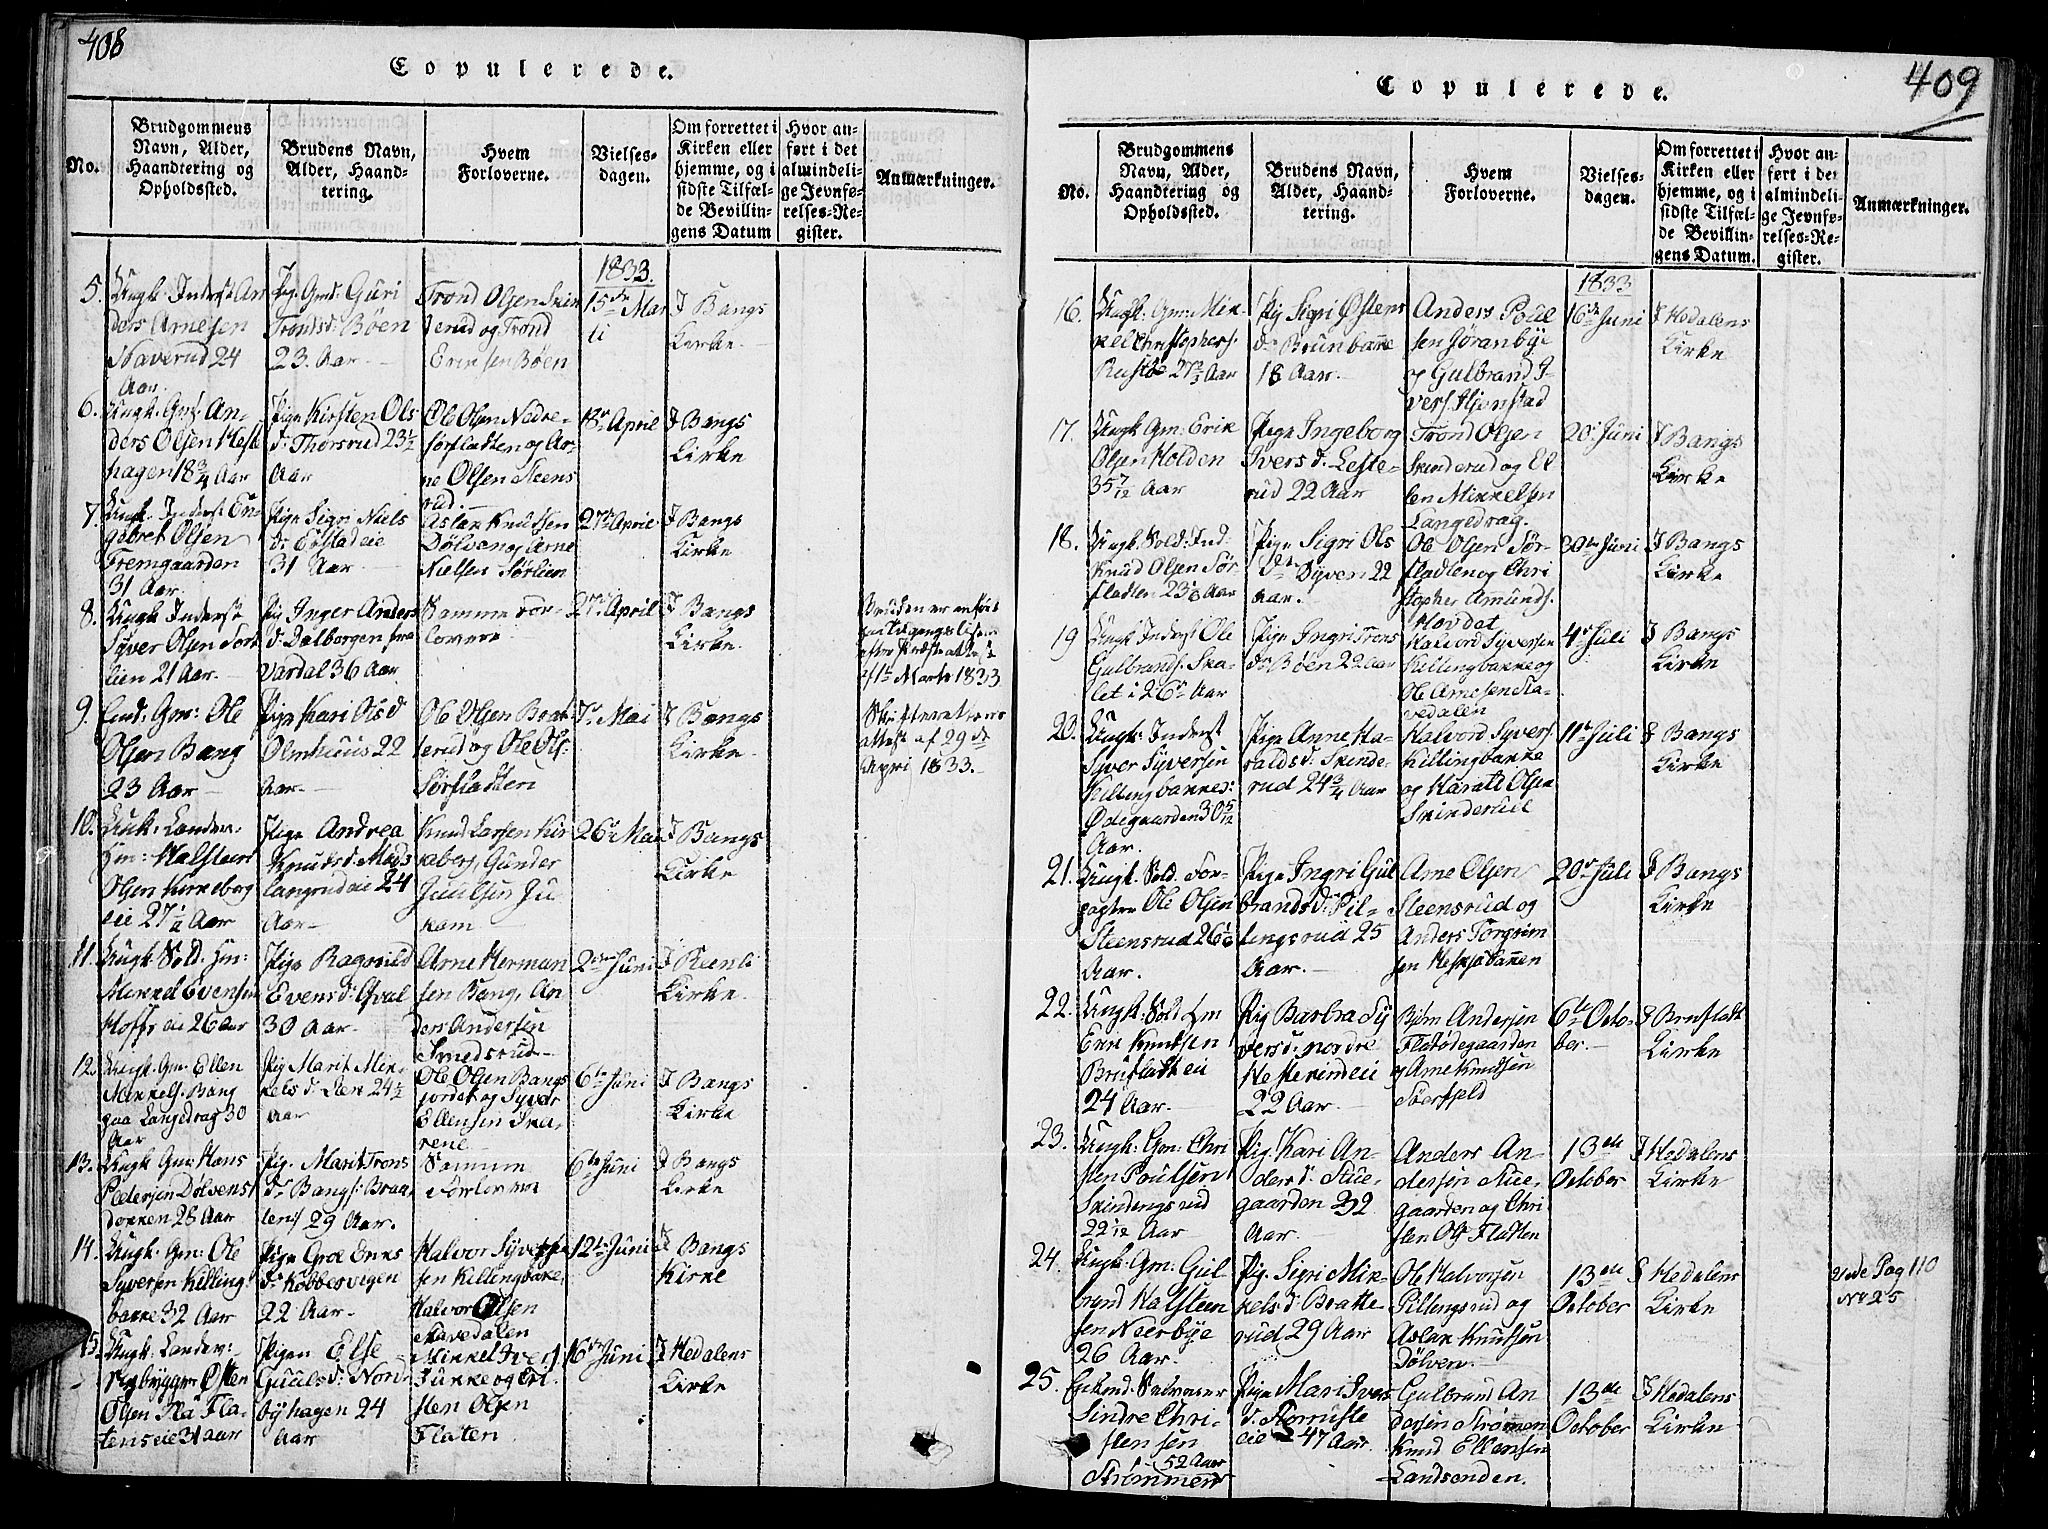 408
Copulerede.
No.
Brudgommens
Navn, Alder,
Haandtering og
Opholdssted.
Brudens Navn,
Alder, Haand-
tering.
Hvem
Forloverne.
Vielses-
dagen.
Om forrettet i
Kirken eller
hjemme, og i
sidste Tilfæl-
de Bevillin-
gens Datum
Hvor an-
ført i det
almindeli-
ge Jevnfø-
relses-Re-
gister.
Anmærkninger.
1833
5. Ungk: Inderst An
ders Arnesen
Haverud 24
Aar.
Pig. Gmd. Guri
Tronds d: Böen
23 Aar.
Trond Olsen Skin
derud og Trond
Eriksen Böen
15de Mar
ti
I Bangs
Kirke
6. Ungk. Gm: An-
ders Olsen Hest
hagen 18 3/4 Aar
Pige Kirsten Ols
d: Thorsrud 23 1/2
Aar
Ole Olsen Nedre-
Sørfladten og Ar-
ne Olsen Steens
rud.
18de April
I Bangs
Kirke
7. Ungk. Inderst En-
gebret Olsen
Fremgaarden
31 Aar.
Pige Sigri Niels
d: Eestad eie
31 Aar
Aslak Knudsen
Dölven og Arne
Nielsen Sørlien
27de April
I Bangs
Kirke
8. Ungk Inderst
Syver Olsen Sørt
lien 21 Aar.
Pig Inger Anders
d: Dælborgen fra
Vardal 36 Aar
Samme For-
lovere
27de April
I Bangs
Kirke.
Bruden er anført
i tilgangslisten
efter Præsteattest
af 1ste Marts 1833
9. Gm: Ole
Olsen Bang
23 Aar
Pige Kari Olsd
Olmhuus 22
Aar.
Ole Olsen Brat
terud og Ole Ols:
Sørfladten
7de Mai
I Bangs
Kirke.
attest af 29de
April 1833.
10. Ungk: Landev.
Hm: Halsteen
Olsen Kirkeberg
eie 27 1/2 Aar
Pige Andrea
Knuds d: Mads
langrud eie 24
Aar
Knud Larsen Kir
keberg, Gunder
Juulsen Ju
kam
26de Mai
I Bangs
Kirke
11. Ungk. Sold. Hm:
Mikkel Evensen
Hoffs eie 26 Aar
Pige Ragnild
Evens d: Qval
30 Aar.
Arne Herman
sen Bang, An
ders Andersen
Smedsrud
2den Juni
I Reenli
Kirke.
12. Ungk. Gm. Ellen
Mikkels. Bang
paa Langedrag 30
Aar
Pig Marit Mik-
kels d: Lie 24 1/2
Aar
Ole Olsen Bangs
jordet og Syver
Ellensen Ska,
rene
6te Juni
I Bangs
Kirke
13. Ungk Gm: Hans
Pedersen Dölvens
dokken 28 Aar
Pig. Marit Trons
d: Bangs: Braa
ten 29 Aar.
Samme
Forlovere
6te Juni
I Bangs
Kirke
14. Ungk. Gm: Ole
Syversen Killing
bakke 32 Aar
Pige Groe Eriks
d: Kobbervigen
22 Aar.
Halvor Syver
sen Killingbakke,
Halvor Olsen
Stavedalen
12te Juni
I Bangs
Kirke
15. Ungk. Landev:
nybygger Østen
Olsen Fla Fla-
tens eie 31 aar
Pigen Else
Guuls d: Nord
byhagen 24
Aar
Mikkel Ivers.
Jukke og Kri
sten Olsen
Flaten
16de Juni
I Hedalens
Kirke
409
Copulerede.
No.
Brudgommens
Navn, Alder,
Haandtering og
Opholdssted.
Brudens Navn,
Alder, Haand-
tering.
Hvem
Forloverne.
Vielses-
dagen.
Om forrettet i
Kirken eller
hjemme, og i
sidste Tilfæl-
de Bevillin-
gens Datum.
Hvor an-
ført i det
almindeli-
ge Jevnfø-
relses-Re-
gister.
Anmærkninger.
1833
16. Ungk: Gm: Mik-
kel Christophers.
Rustøe 27 2/3 Aar
Pig Sigri Østens
d: Brunbakke
18 Aar.
Anders Poul
sen Jøranbye
og Gulbrand I-
vers. Hjenstad
16de Juni
I Hedalens
Kirke
17. Ungk Gm: Erik
Olsen Holden
35 7/12 Aar
Pige Ingeborg
Ivers d: Leste-
rud 22 Aar
Trond Olsen
Skinderud og El
len Mikkelsen
Langedrag.
20de Juni
I Bangs
Kirke
18. Ungk. Sold: Ind:
Knud Olsen Sør-
fladten 23 1/6 Aar
Pige Sigri Ols
d: Dyven 22
Aar.
Ole Olsen Sør-
fladten og Chri
stopher Amunds.
Hovdet
30de Juni
I Bangs
Kirke
19 Ungk Inderst Ole
Gulbrands. Ska-
let i 26de Aar
Pige Ingri Trons
d: Böen 22 aar
Halvord Syversen
Killingbakke og
Ole Arnesen Sta-
vedalen
4de Juli
I Bangs
Kirke
20. Ungk: Inderst
Syver Syversen
Killingbakkes:
Ødegaarden 30 5/12
Aar.
Pige Anne Ha-
ralds d: Skinde-
rud 24 3/4 Aar
Halvord Syvers.
Killingbakke
og Harald Olsen
Skinderud
11te Juli
I Bangs
Kirke
21. Ungk. Sold. For-
pagter Ole Olsen
Steensrud 26 1/6
Aar.
Pige Ingri Gul
brands d: Pil-
lengsrud 25
Aar.
Arne Olsen
Steensrud og
Anders Torgrim
sen Heskjebakken
20de Juli
I Bangs
Kirke
22. Ungk: Sold Hm
Erik Knutsen
Brufladt eie
24 Aar.
Pig Barbra Sy
vers d: nordre
Hestekind eie
22 Aar.
Bjørn Andersen
Flatødegaarden
og Arne Knudsen
Søerfjeld
6te Octo-
ber.
I Brufladt
Kirke
23. Ungk: Gm: Chri
sten Poulsen
Skindengsrud
22 1/12 Aar
Pig. Kari An-
ders d: Stue-
gaarden 32
Aar.
Anders An-
dersen Stue-
gaarden og Chri
sten Ols Flatten
13de
October
I Hedalens
Kirke
24. Ungk: Gm: Gul
brand Halsteen
sen Neerbye
26 Aar.
Pig. Sigri Mik-
kels d: Bratte-
rud 29 Aar
Ole Halvorsen
Pillengsrud og
Aslak Knutsen
Dölven
13de
October
I Hedalens
Kirke
Vide Pag 110
No 25
25. Enkmd: Selveier
Sindre Chri-
stensen
52 Aar
Strømmen
Pige Mari Ivers
d. Storruste
eie 47 Aar
Gulbrand An
dersen Strømmen
Knud Ellensen
Landsenden.
13de
October
I Hedalens
Kirke